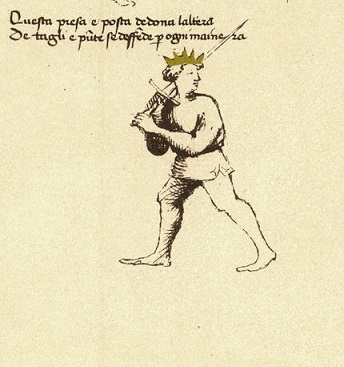 Questa presa e posta dedona laltera
De tagli e pūte se deffēde p ogni maine ra